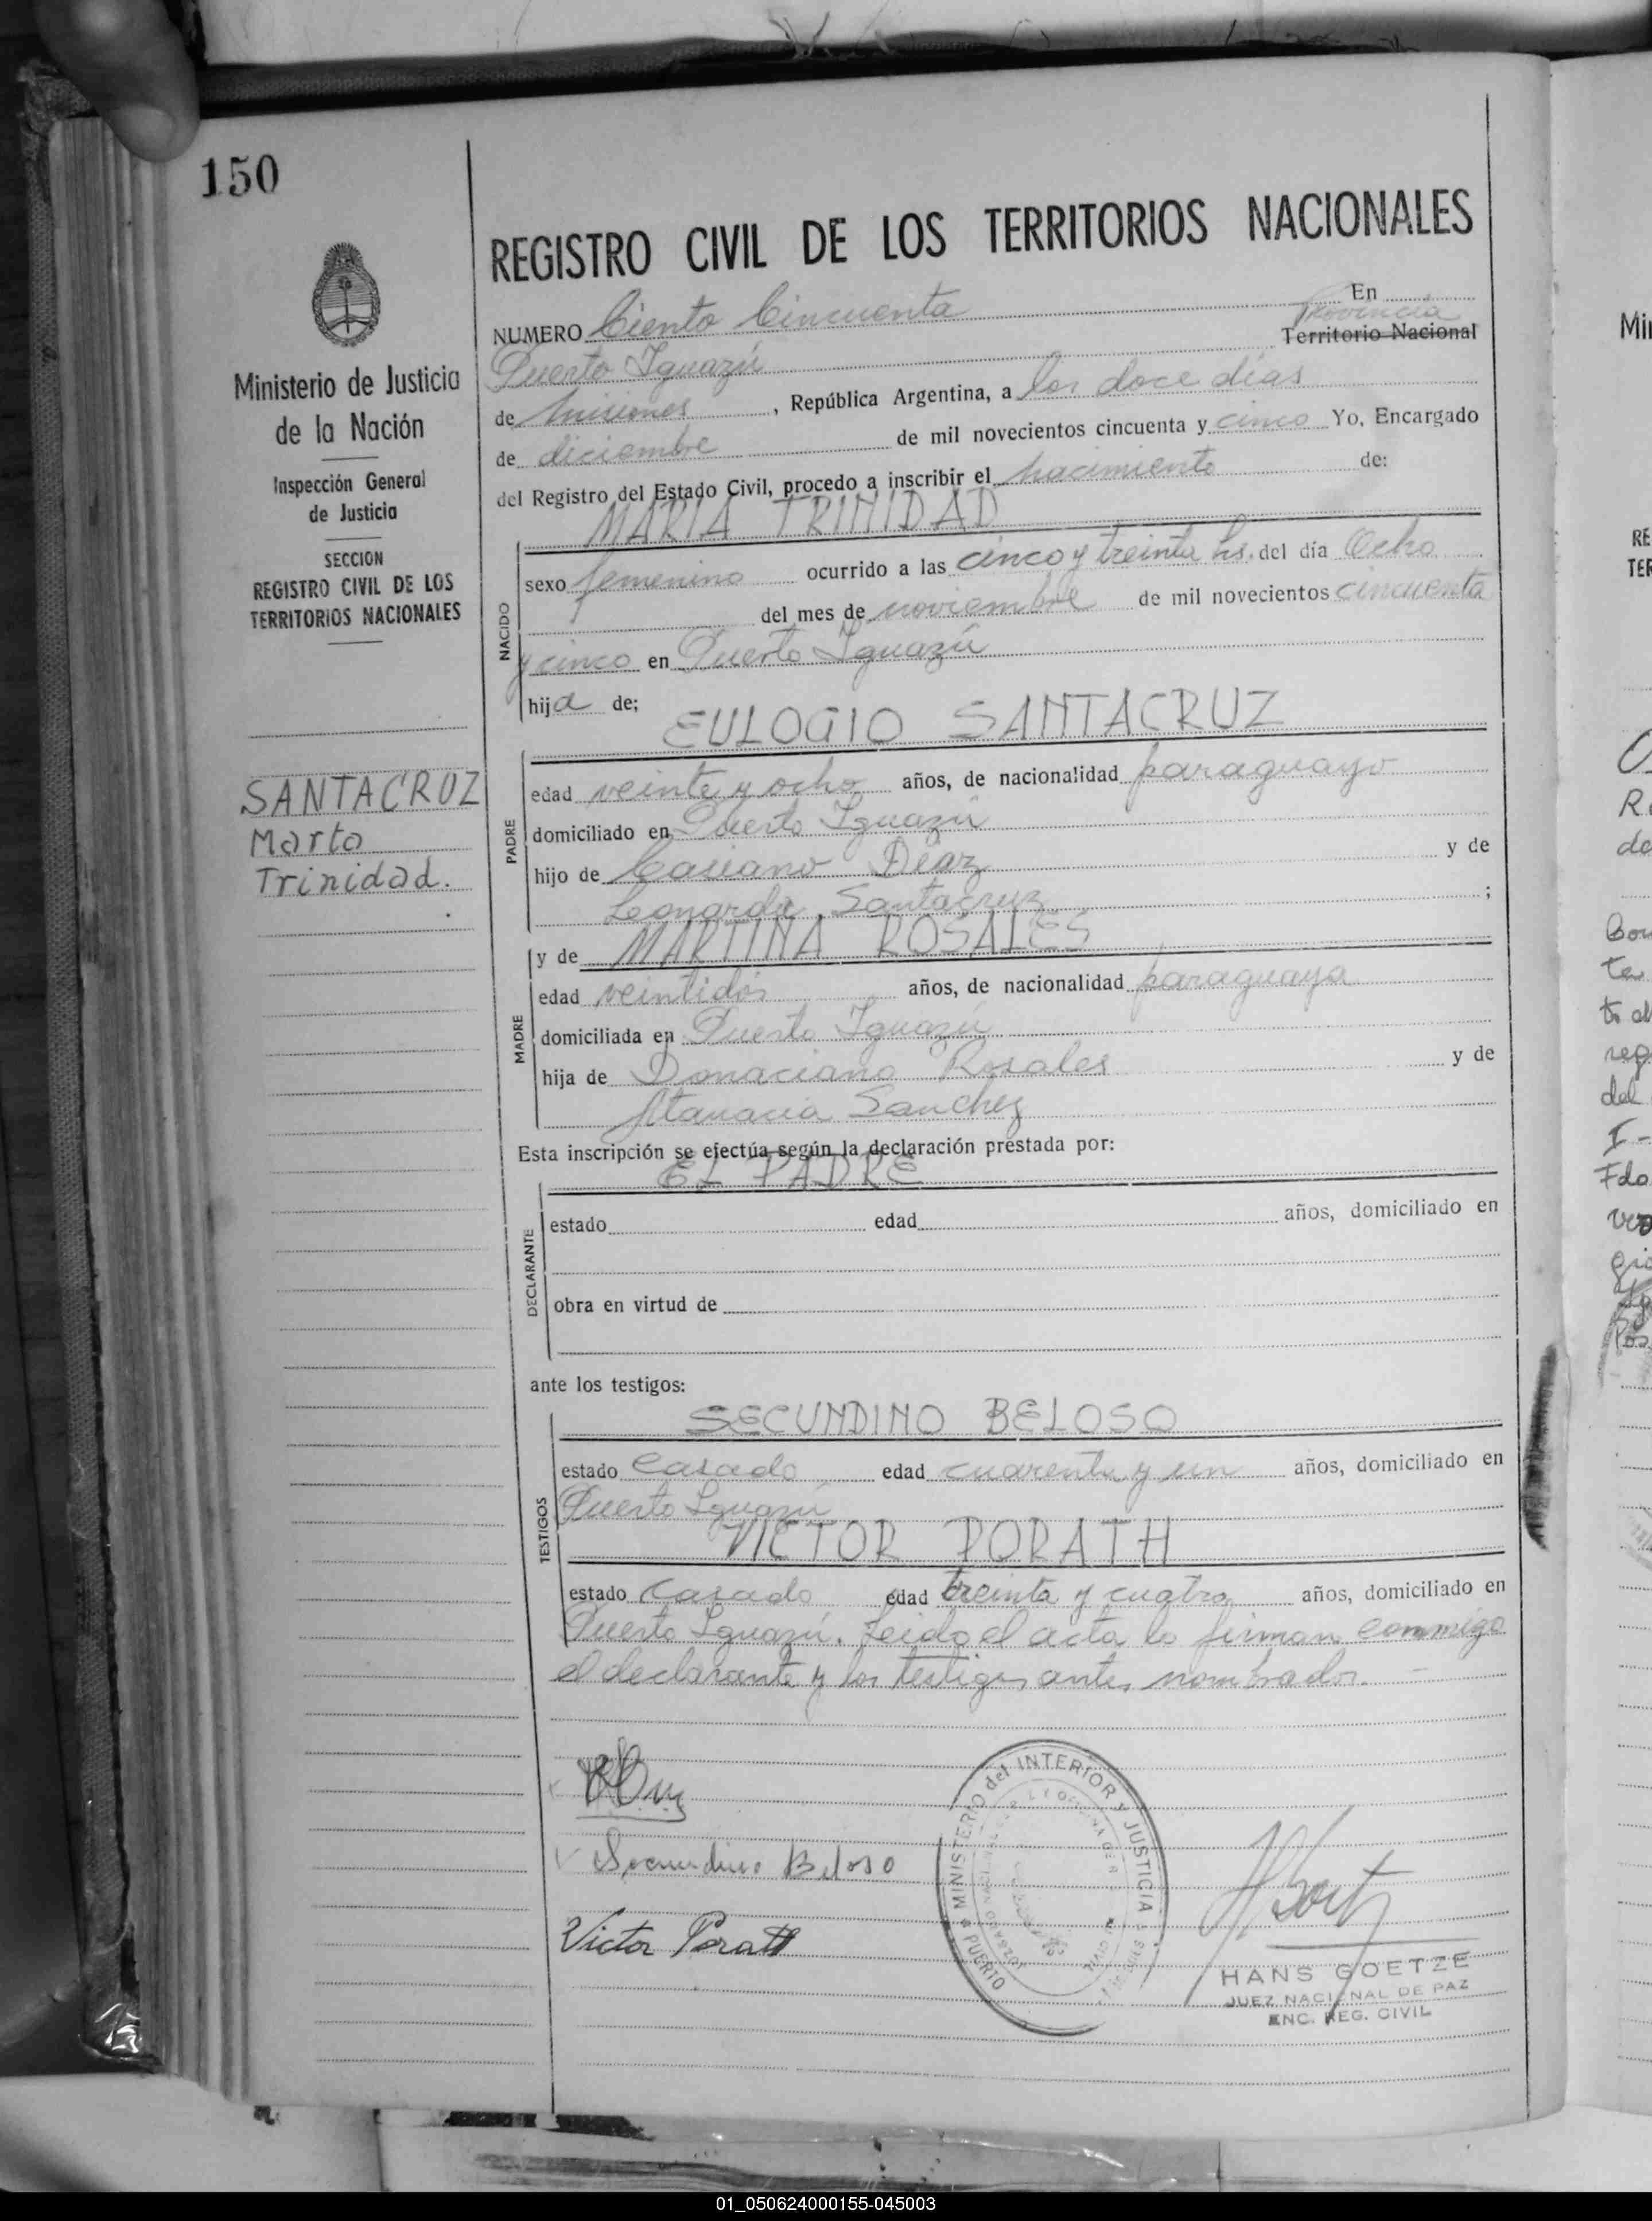 150
Ministerio de Justicia
de la Nación
Inspección General
de Justicia
SECCION
REGISTRO CIVIL DE LOS
TERRITORIOS NACIONALES
SANTACRUZ
Marta
Trinidad.
REGISTRO CIVIL DE LOS TERRITORIOS NACIONALES
NUMERO Ciento Cincuenta En
Provincia
Puerto Iguazú Territorio Nacional
de Misiones, República Argentina, a los doce días
de diciembre de mil novecientos cincuenta y cinco Yo, Encargado
del Registro del Estado Civil, procedo a inscribir el nacimiento de:
MARTA TRINIDAD
NACIDO
sexo femenino ocurrido a las cinco y treinta hs. del día Ocho
del mes de noviembre de mil novecientos cincuenta
y cinco en Puerto Iguazú
hija de;
EULOGIO SANTACRUZ
PADRE
edad veinte y ocho años, de nacionalidad paraguayo
domiciliado en Puerto Iguazú
hijo de Casiano Diaz y de
Leonarda Santacruz ;
y de MARTINA ROSALES
MADRE
edad veintidos años, de nacionalidad paraguaya
domiciliada en Puerto Iguazú
hija de Donaciano Rosales y de
Atanacia Sanchez
Esta inscripción se efectúa según la declaración prestada por:
EL PADRE
DECLARANTE
estado edad años, domiciliado en
obra en virtud de
ante los testigos:
SECUNDINO BELOSO
TESTIGOS
estado Casado edad cuarenta y un años, domiciliado en
Puerto Iguazú
VICTOR PORATH
estado Casado edad treinta y cuatro años, domiciliado en
Puerto Iguazú. Leido el acta lo firman conmigo
el declarante y los testigos antes nombrados. -
Secundino Beloso
Victor Porath
MINISTERIO del INTERIOR y JUSTICIA
PUERTO
HANS GOETZE
JUEZ NACIONAL DE PAZ
ENC. REG. CIVIL
01_050624000155-045003